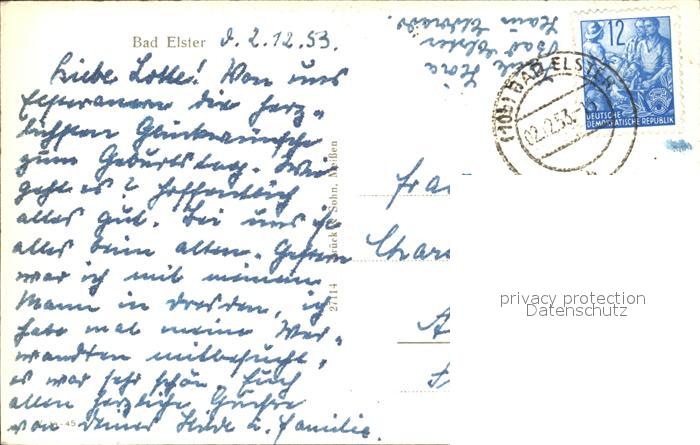 Bad Elster d. 2.12.53.
Liebe Lotte! Von uns
die herz-
lichsten Glückwünsche
zum Geburtstag. Wie
geht es? Hoffentlich
alles gut. Bei uns ist
alles beim alten. Gestern
war ich mit meinem
Mann in Dresden, ich
habe mal meine Ver-
wandten mitbesucht,
es war sehr schön. Euch
allen herzliche Grüsse
von Deiner Hilde u. Familie.
Bad Elster
12
DEUTSCHE
DEMOKRATISCHE REPUBLIK
(10b) BAD ELSTER
02.12.53
Sohn, Meißen
27114
45
Frau
privacy protection
Datenschutz